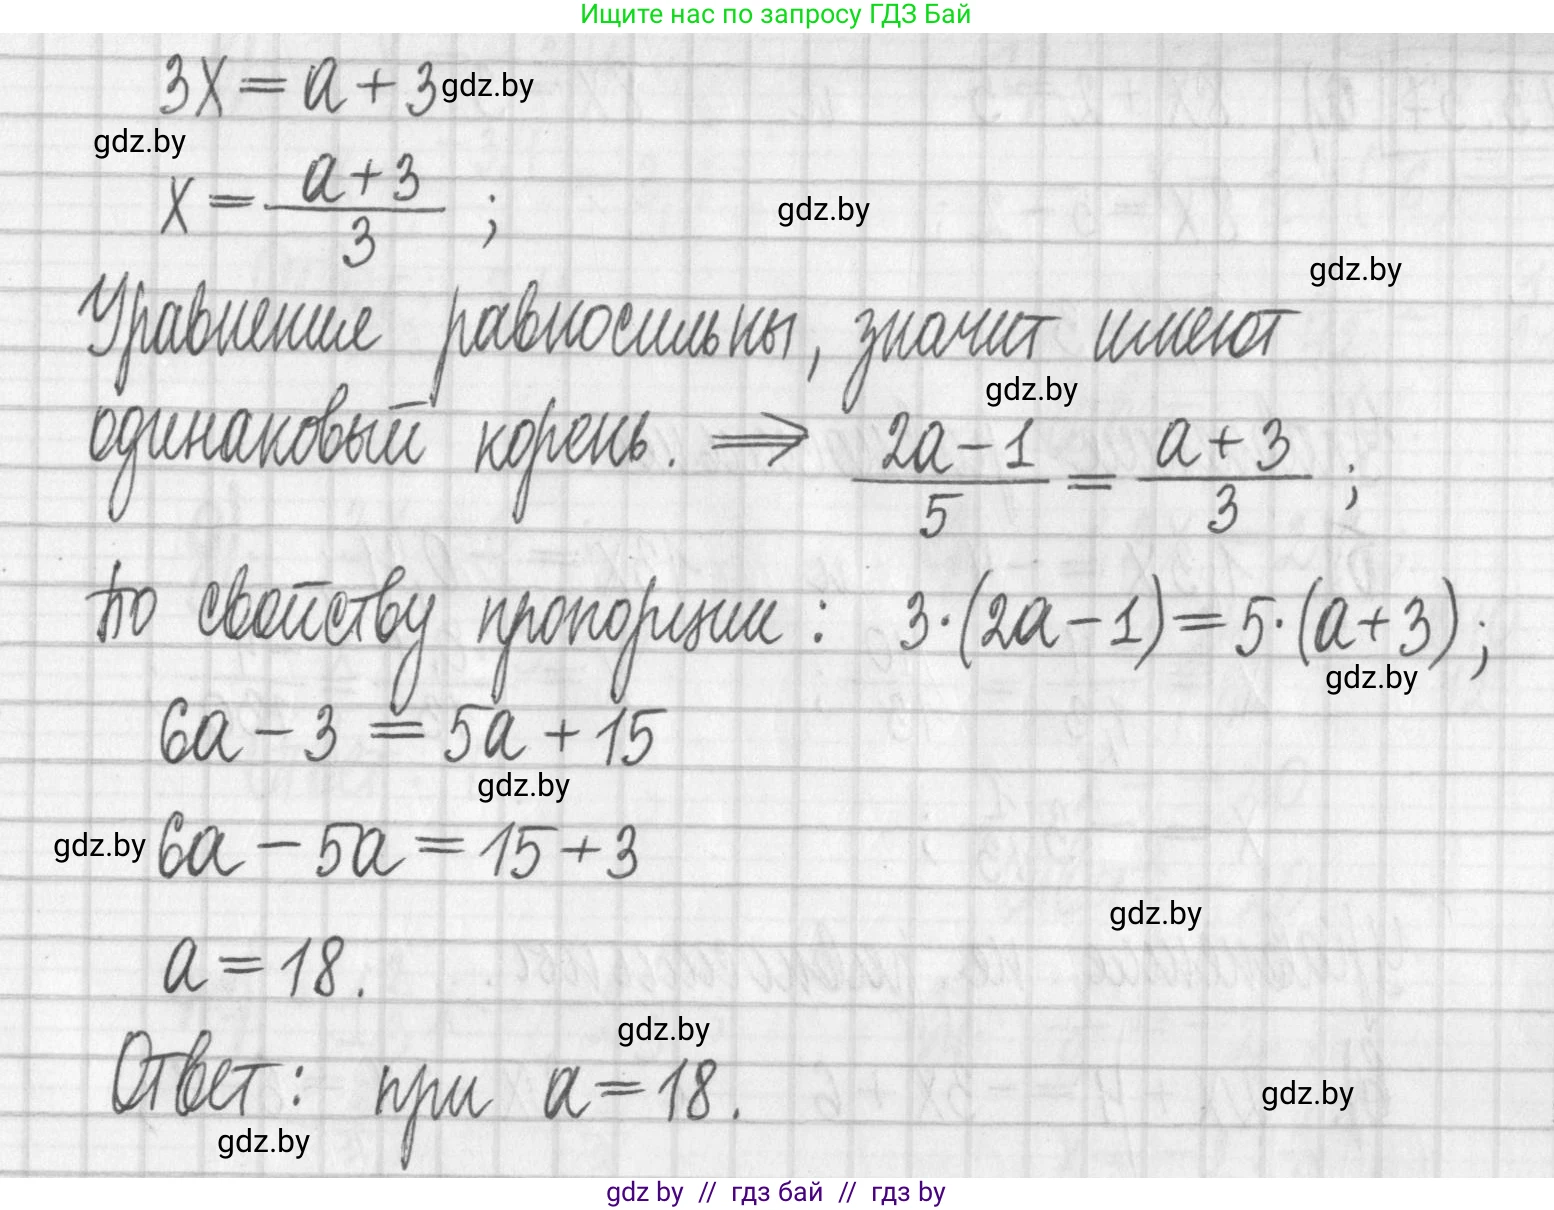 Ищите нас по запросу ГДЗ Бай
3x = a + 3 gdz.by
gdz.by
x = (a + 3)/3 ; gdz.by
gdz.by
Уравнения равносильны, значит имеют
gdz.by
одинаковый корень. ⟹ (2a - 1)/5 = (a + 3)/3 ;
По свойству пропорции : 3·(2a - 1) = 5·(a + 3) ;
gdz.by
6a - 3 = 5a + 15
gdz.by
gdz.by 6a - 5a = 15 + 3
gdz.by
a = 18.
gdz.by
Ответ: при a = 18.
gdz.by
gdz.by
gdz by // гдз бай // гдз by